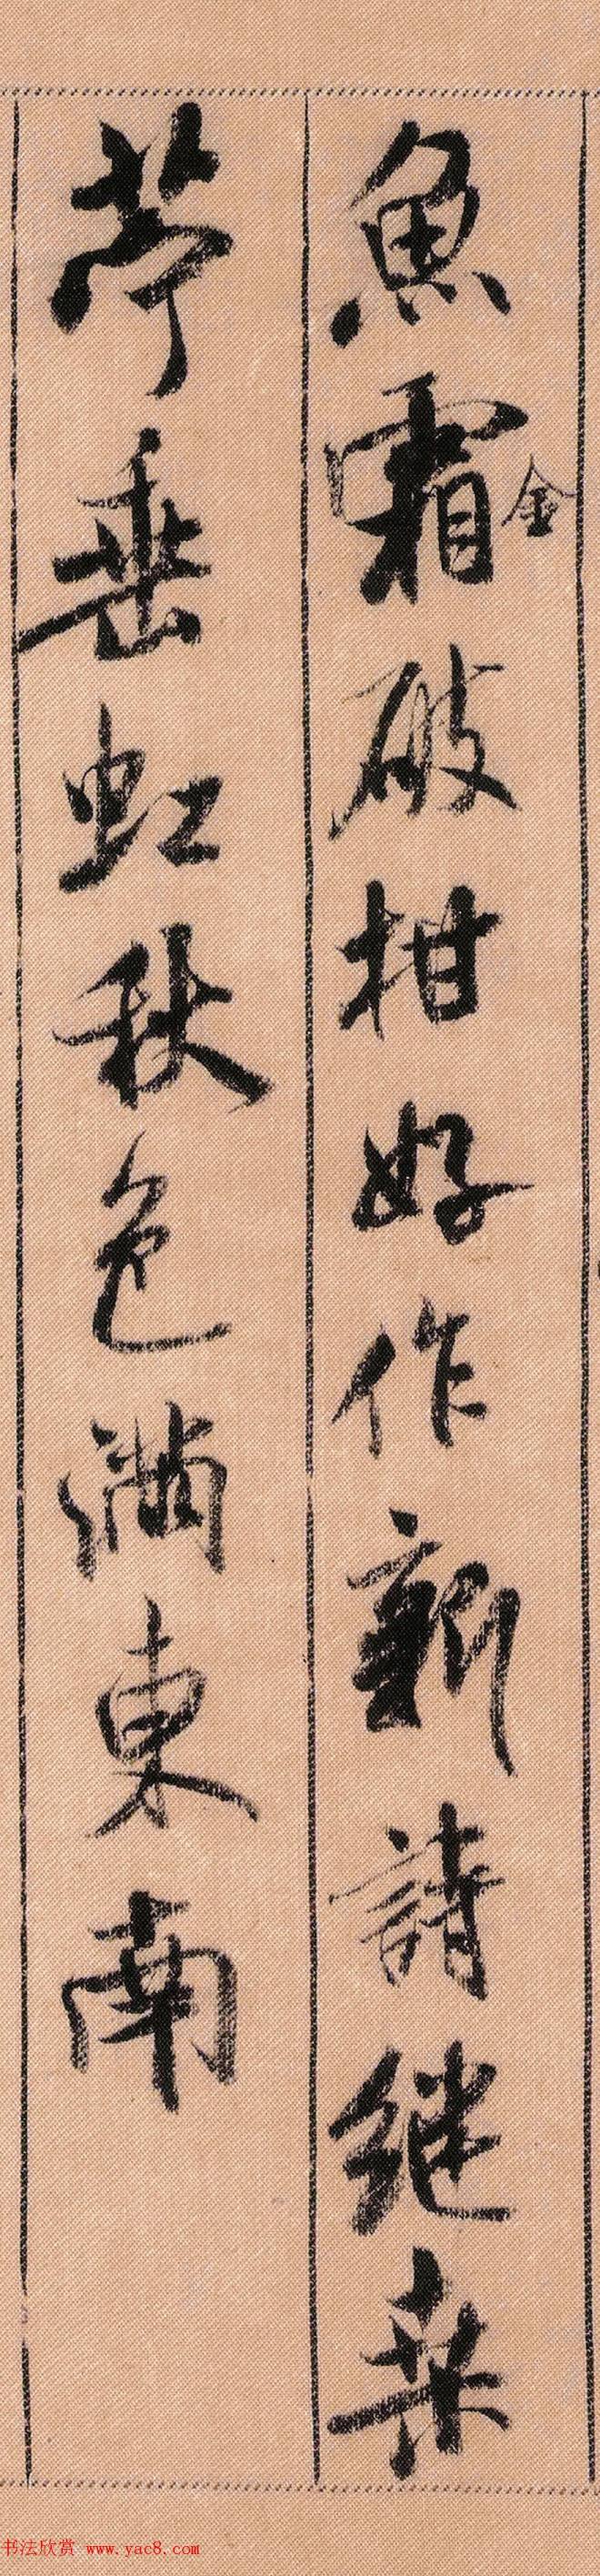 魚霜金破柑好作新詩繼桑
苧垂虹秋色滿東南
书法欣赏 www.yac8.com